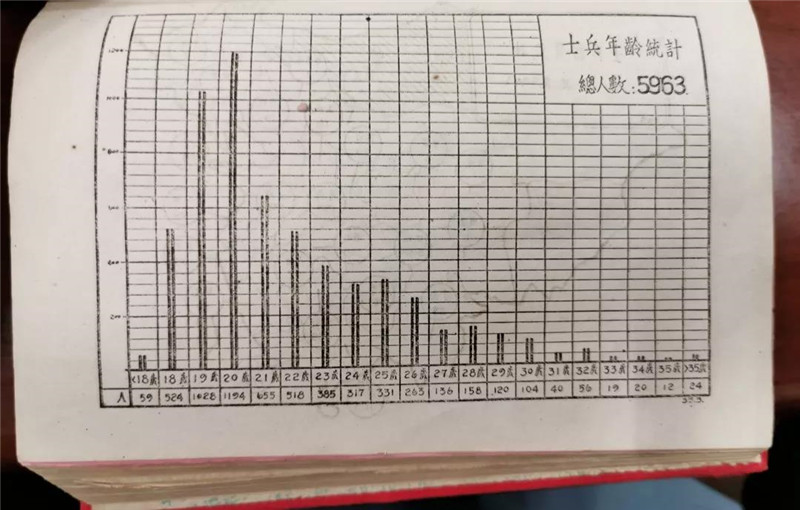 士兵年齡統計
總人數:5963
1200
1000
800
400
200
<18歲 18歲 19歲 20歲 21歲 22歲 23歲 24歲 25歲 26歲 27歲 28歲 29歲 30歲 31歲 32歲 33歲 34歲 35歲 >35歲
人 59 524 1028 1194 655 518 385 317 331 263 136 158 120 104 40 56 19 20 12 24